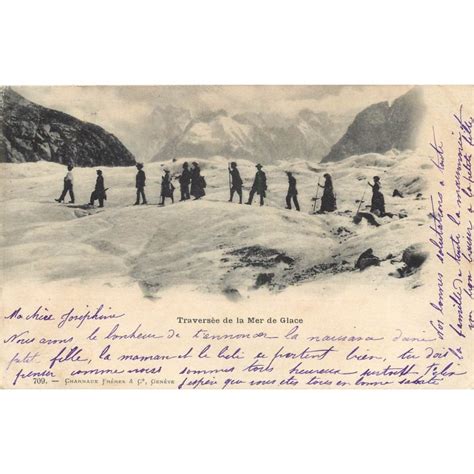 Traversée de la Mer de Glace
Ma chère Joséphine
Nous avons le bonheur de t'annoncer la naissance d'une
petite fille, la maman et le bébé se portent bien, tu dois
penser comme nous sommes tous heureux surtout
j'espère que vous êtes tous en bonne santé
709. – CHARNAUX FRÈRES & Co, GENÈVE
Nos bonnes salutations à toute
la famille de toute la